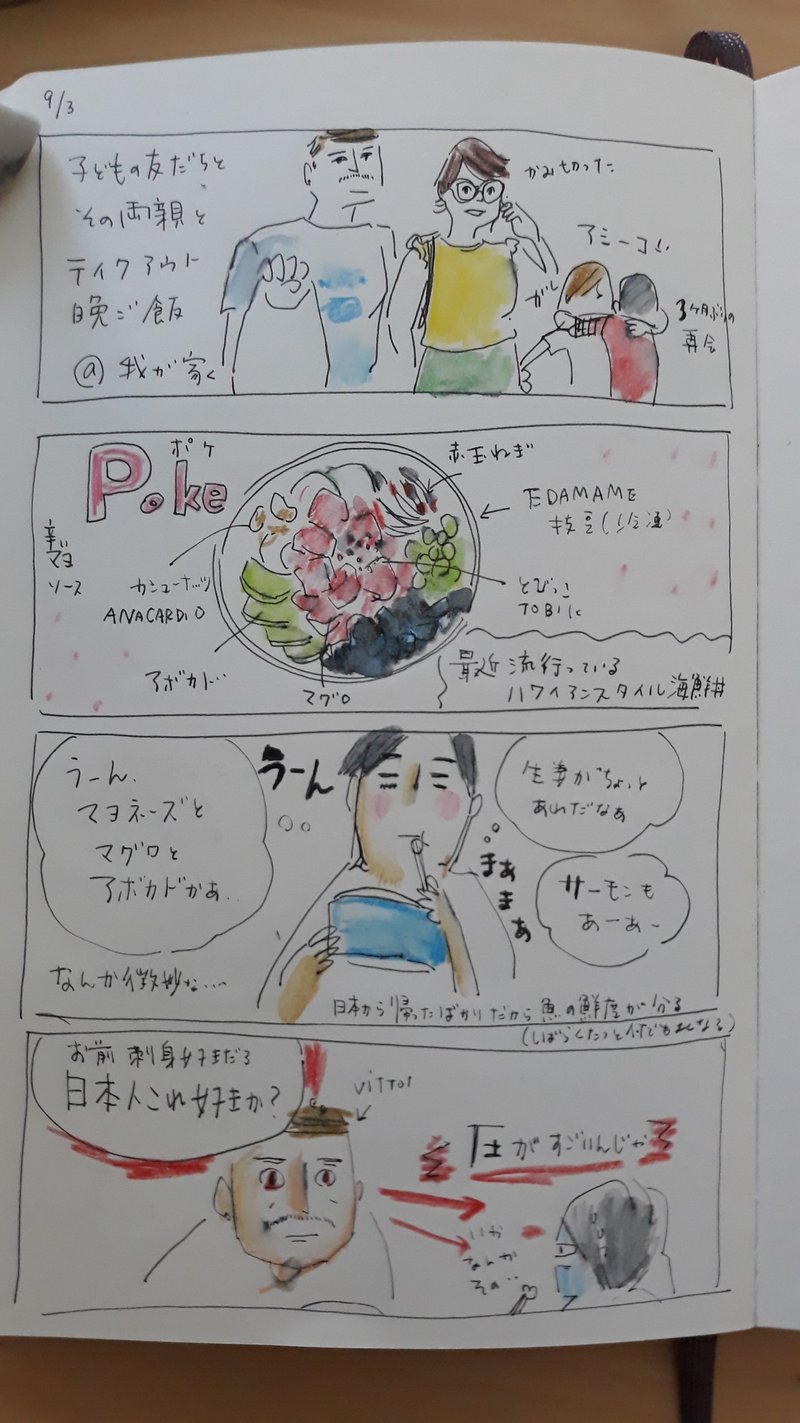 9/3
子どもの友だちと
その両親と
テイクアウト
晩ご飯
@ 我が家
かみ切った
アミーコ!!
ガシ
3ヶ月ぶりの
再会
Poke
ポケ
赤玉ねぎ
EDAMAME
枝豆(冷凍)
辛マヨ
ソース
カシューナッツ
ANACARDIO
とびっこ
TOBIK
アボカド…
マグロ
最近流行っている
ハワイアンスタイル海鮮丼
うーん、
マヨネーズと
マグロと
アボカドかぁ..
うーん
生姜がちょっと
あれだなぁ
まぁ
まぁ
サーモンも
あーあー
なんか微妙な…
日本から帰ったばかりだから魚の鮮度が分る
(しばらくたつと何でもよくなる)
お前 刺身好きだろ
日本人これ好きか?
vittor
圧がすごいんじゃ
いや
なんか
その…